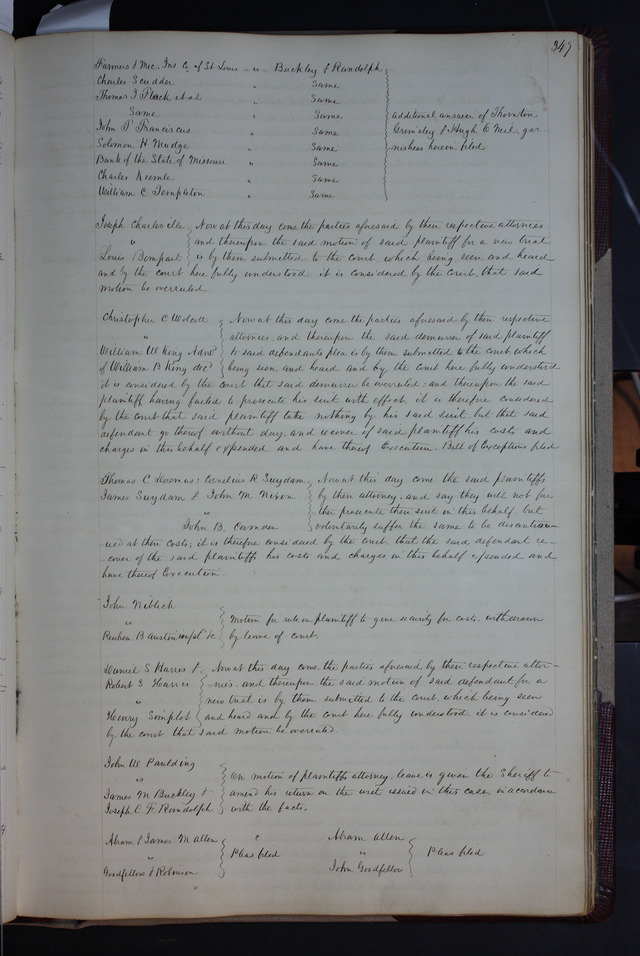 347
Farmers & Mec. Ins Co of St Louis vs Buckley & Randolph
Charles Scudder " Same
Thomas J Flack et al " Same
Same " Same additional answer of Thornton
John P Franciscus " Same Grimsley & Hugh O Neil, gar-
Solomon H Mudge " Same nishees herein filed
Bank of the State of Missouri " Same
Charles Keemle " Same
William C Templeton " Same
Joseph Charleville Now at this day come the parties aforesaid by their respective attornies
" and thereupon the said motion of said plaintiff for a new trial
Louis Bompart is by them submitted to the court, which being seen and heard
and by the court here fully understood it is considered by the court that said
motion be overruled
Christopher C Wolcott Now at this day come the parties aforesaid by their respective
" attornies and thereupon the said demurrer of said plaintiff
William W King Admr to said defendants plea is by them submitted to the court, which
of William B King decd being seen and heard and by the court here fully understood
it is considered by the court that said demurrer be overruled: and thereupon the said
plaintiff having failed to prosecute his suit with effect it is therefore considered
by the court that said plaintiff take nothing by his said suit, but that said
defendant go thereof without day, and recover of said plaintiff his costs and
charges in this behalf expended and have thereof Execution. Bill of Exceptions filed
Thomas C Cornelius R Suydam Now at this day come the said plaintiffs
James Suydam & John M Nixon by their attorney, and say they will not fur
" ther prosecute their suit in this behalf but
John B. Camden voluntarily suffer the same to be discontin-
ued at their costs; it is therefore considered by the court, that the said defendant re-
cover of the said plaintiffs his costs and charges in this behalf expended and
have thereof Execution
John Niblech
" motion for rule on plaintiff to give security for costs withdrawn
Reuben B Austin impld &c by leave of court.
Daniel S Harris & Now at this day come the parties aforesaid by their respective attor-
Robert S Harris nies. and thereupon the said motion of said defendant for a
" new trial is by them submitted to the court, which being seen
Henry Simplot and heard and by the court here fully understood, it is considered
by the court that said motion be overruled.
John W Paulding
vs On motion of plaintiffs attorney leave is given the Sheriff to
James M Buckley & amend his return on the writ issued in this case, in accordance
Joseph C F Randolph with the facts.
Abram & James M Allen Abram Allen
" Pleas filed " Pleas filed
Goodfellow & Robinson John Goodfellow